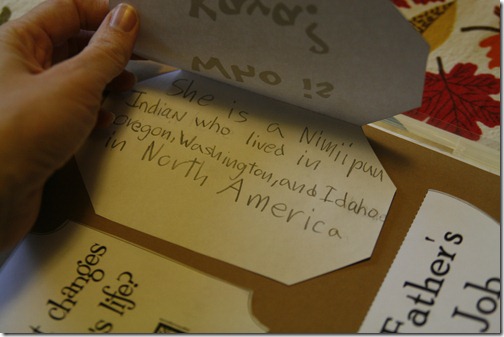 Who is
Kaya?
She is a Nimiipuu
Indian who lived in
Oregon, Washington, and Idaho,
in North America
t changes
's life?
Father's
Job